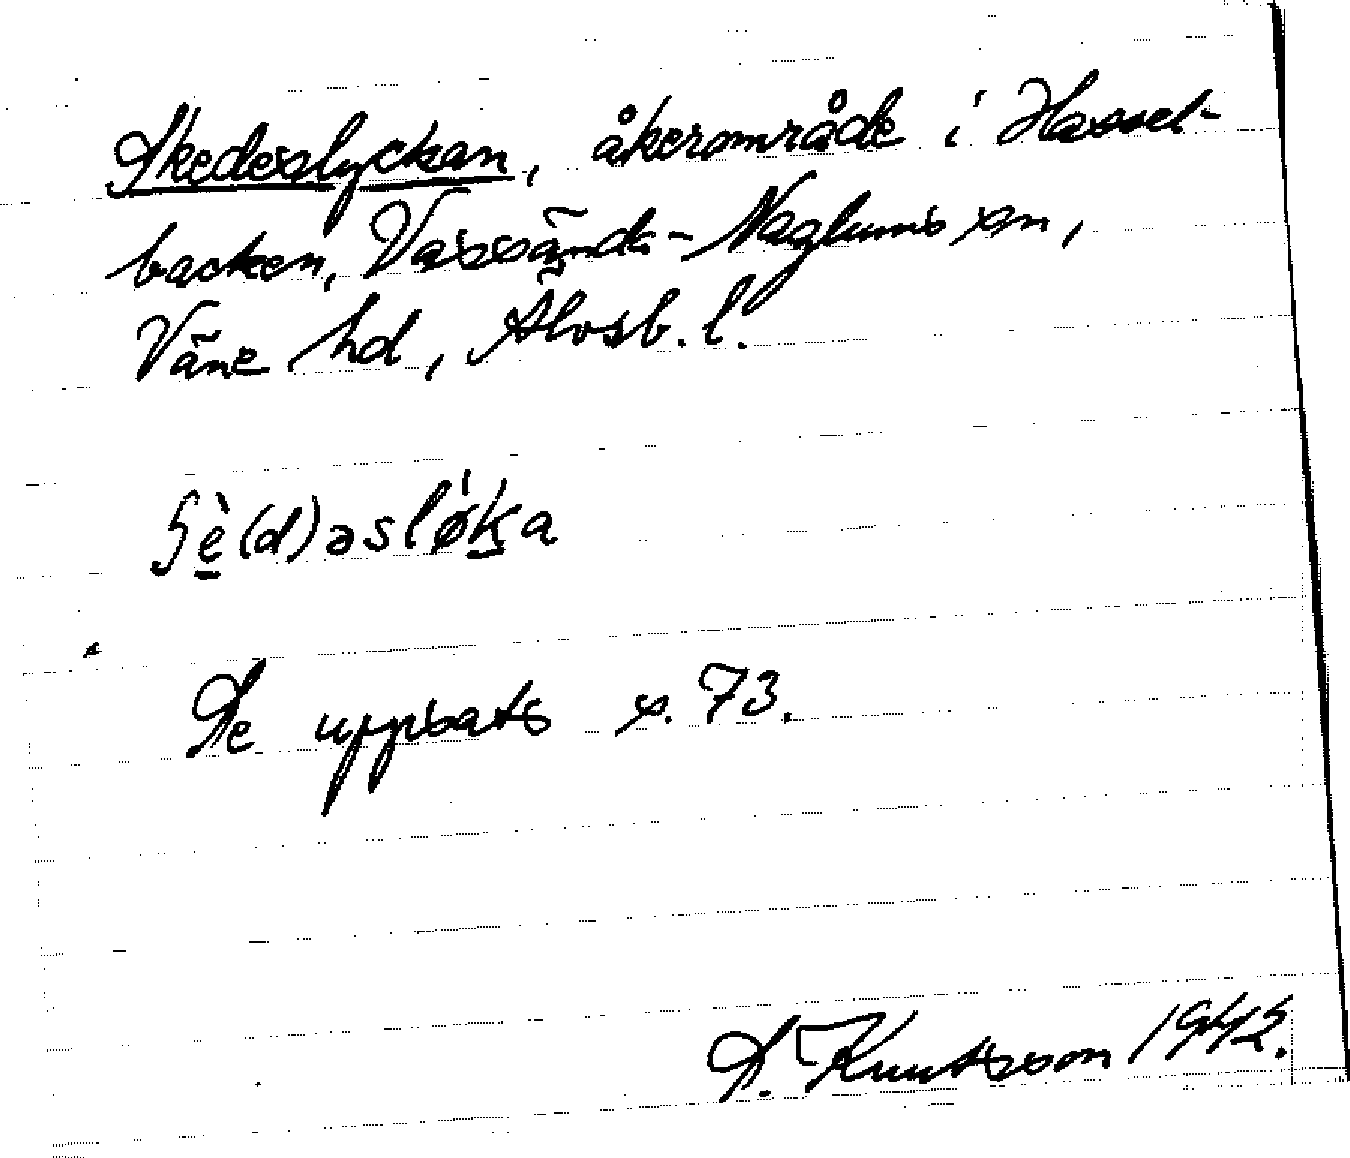 Skedeslyckan, åkerområde i Hassel-
backen, Vassända-Naglums sn,
Väne hd, Älvsb. l.
ʃè̱(d)əslø̍ḵa
Se uppsats s. 73.
S. Knutsson 1942.